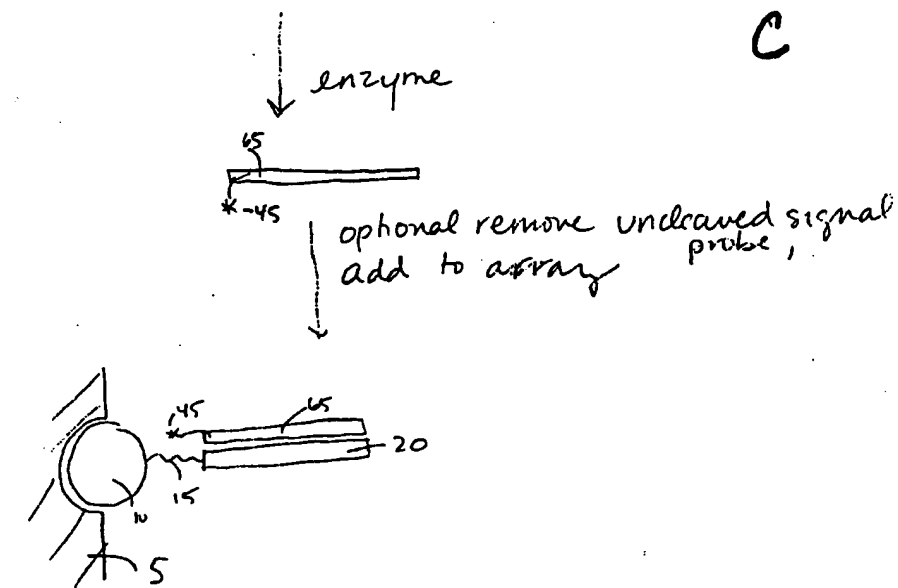 C
enzyme
65
*-45
optional remove uncleaved signal
probe,
add to array
45
65
20
15
10
5